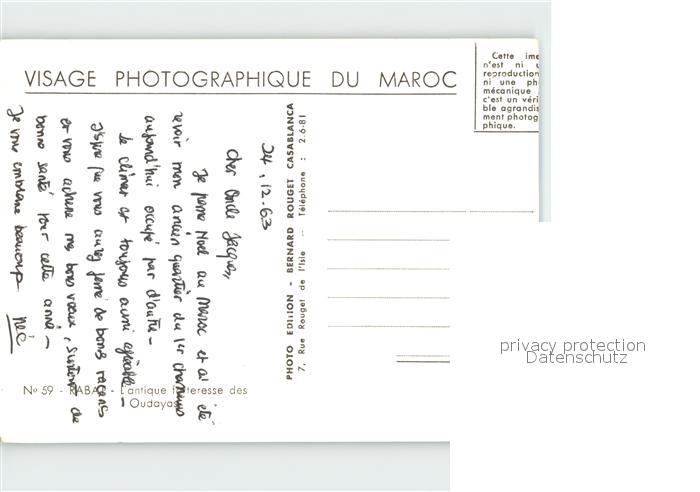 VISAGE PHOTOGRAPHIQUE DU MAROC
Cette
n'est ni
reproduction
ni une
mécanique
c'est un
ble agrandis
ment photog
phique.
PHOTO EDITION - BERNARD ROUGET CASABLANCA
7, Rue Rouget de l'Isle -- Téléphone : 2.6-81
24.12.63
Cher Oncle Jacques,
Je passe Noël au Maroc et ai été
revoir mon ancien quartier du 1er chasseurs
aujourd'hui occupé par d'autres -
le climat est toujours aussi agréable -
J'espère que vous aurez fermé de bonnes
et vous adresse mes bons voeux, surtout de
bonne santé pour cette année -
Je vous embrasse beaucoup
No 59 - RABAT - L'antique forteresse des
Oudayas
privacy protection
Datenschutz